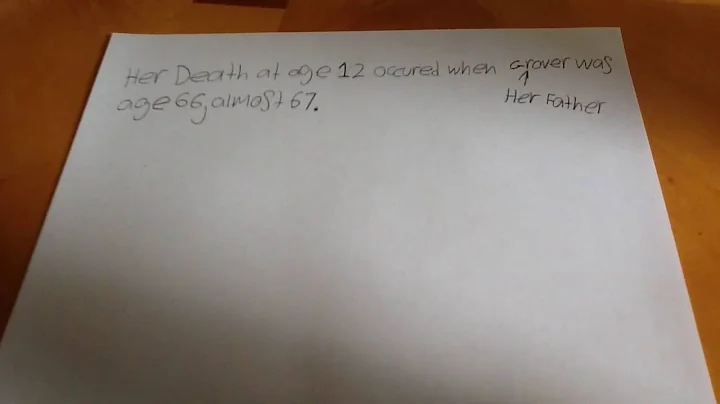 Her Death at age 12 occured when Grover was
↑
Her Father
age 66, almost 67.